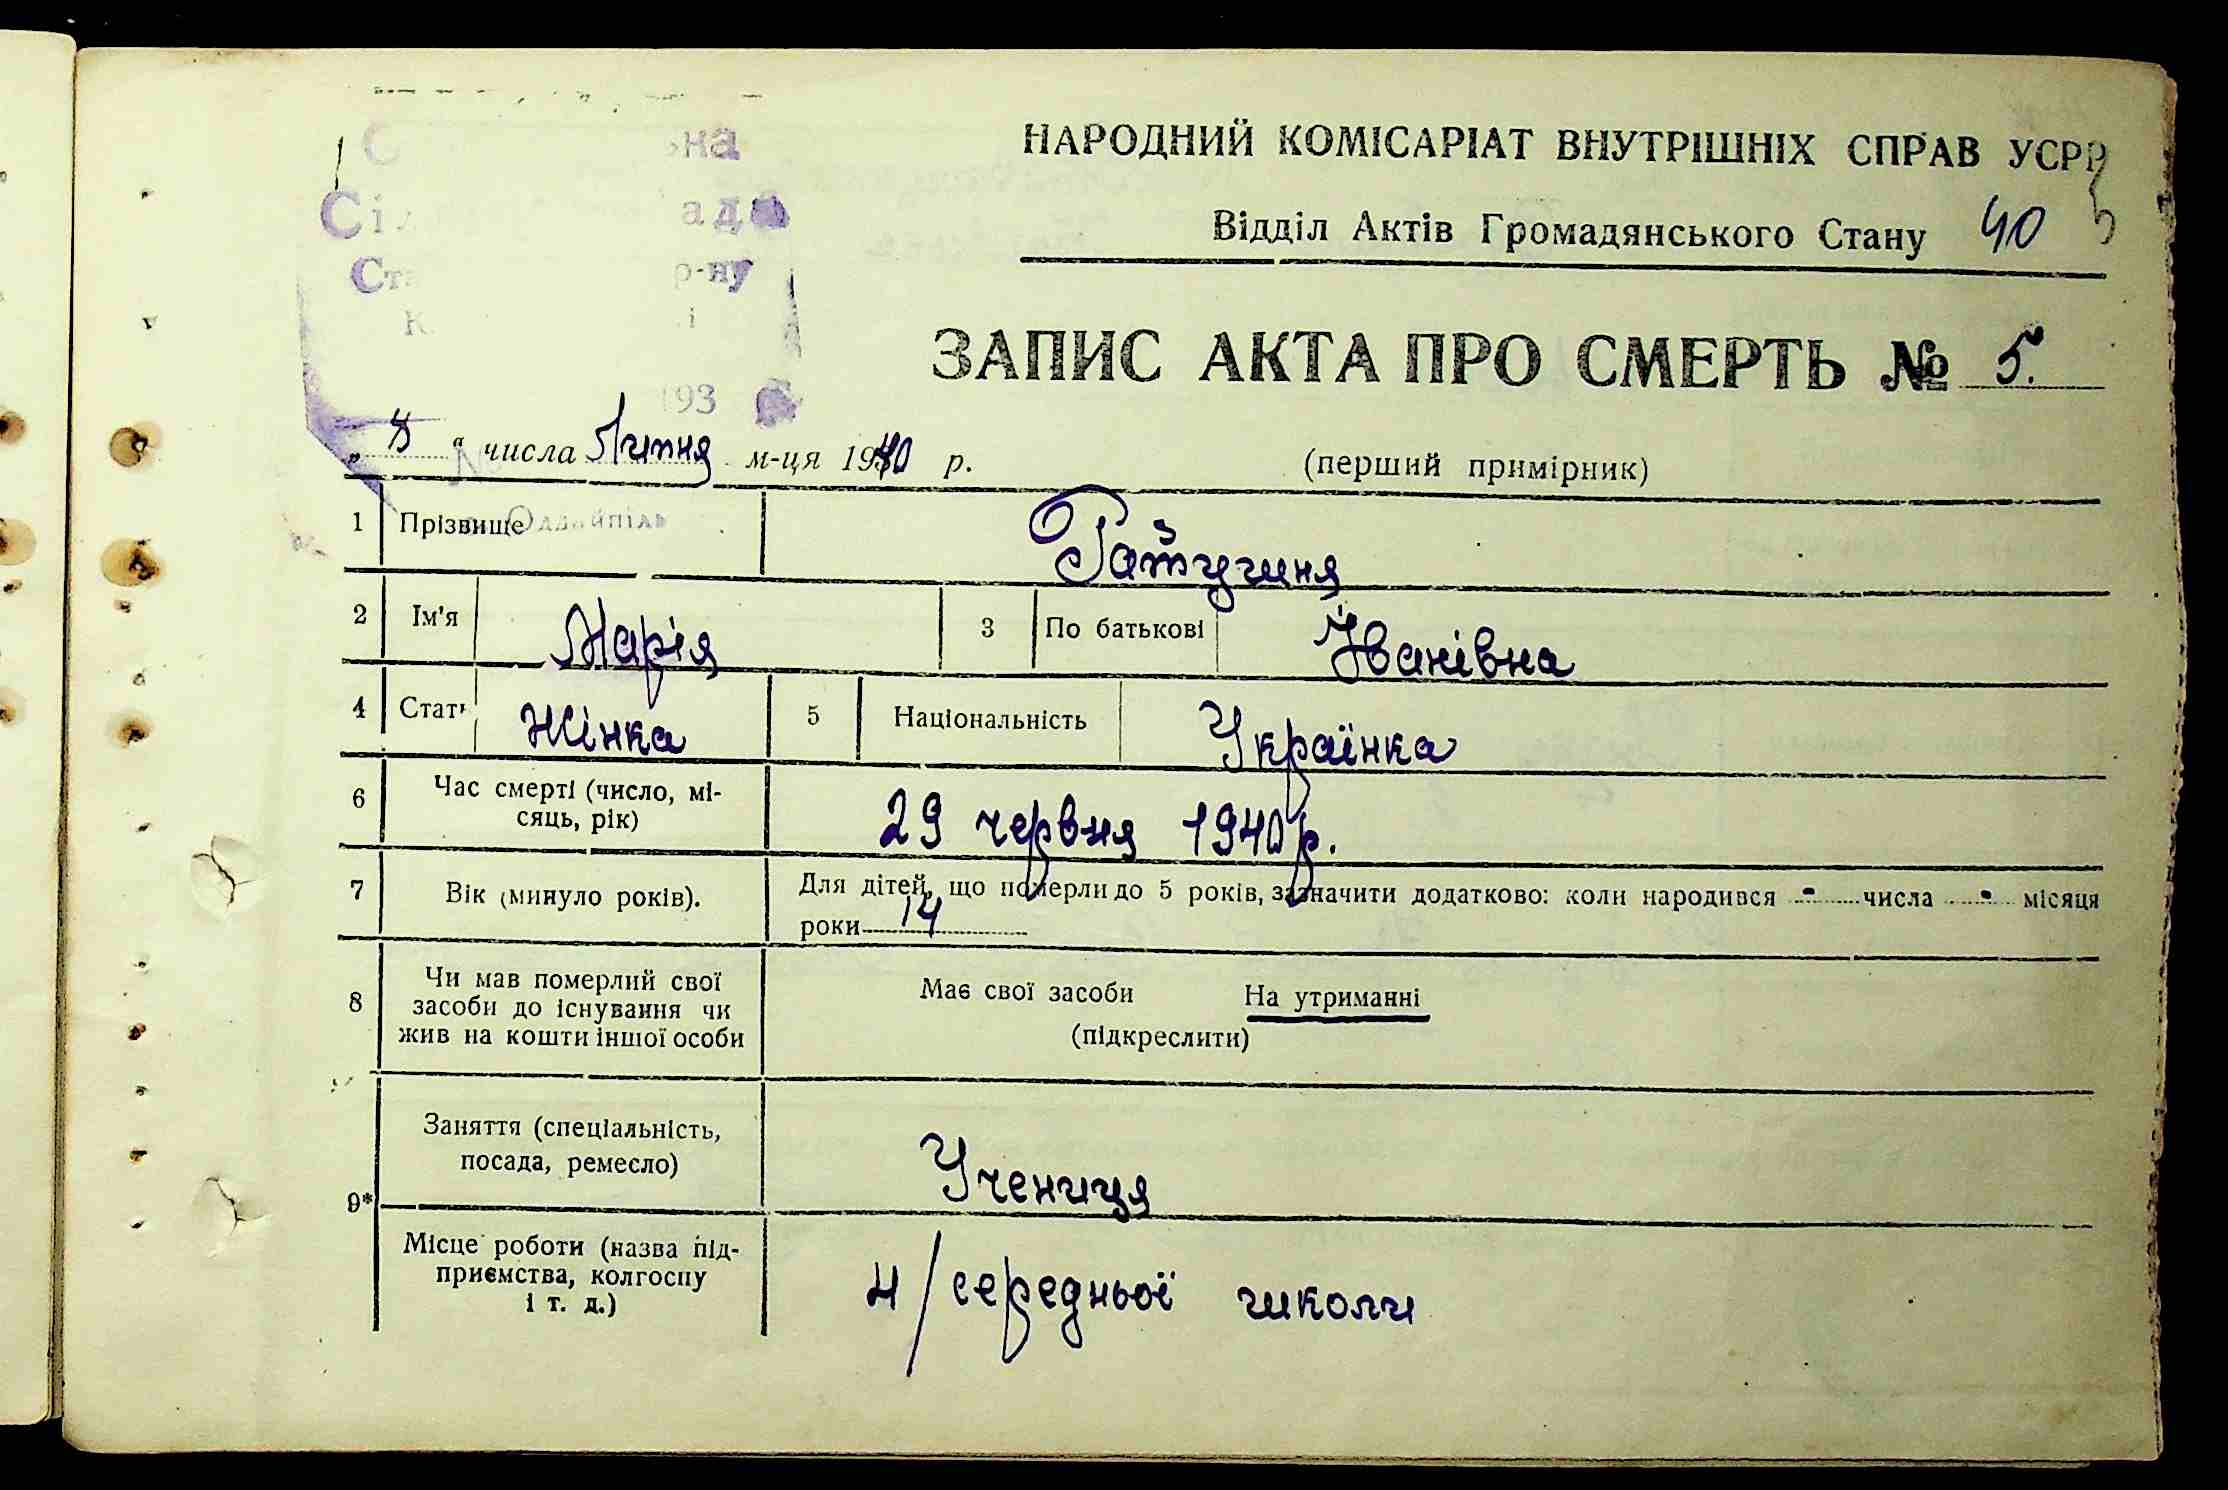 на
Сіл ад
Ст р-ну
К і
193
НАРОДНИЙ КОМІСАРІАТ ВНУТРІШНІХ СПРАВ УСРР
Відділ Актів Громадянського Стану 40
ЗАПИС АКТА ПРО СМЕРТЬ № 5.
„ 8 " числа Липня м-ця 1940 р.
(перший примірник)
1 Прізвище Ратушня
2 Ім'я Марія 3 По батькові Іванівна
4 Стать Жінка 5 Національність Українка
6 Час смерті (число, мі-
сяць, рік) 29 червня 1940 р.
7 Вік (минуло років). Для дітей, що померли до 5 років, зазначити додатково: коли народився - числа - місяця
роки 14
8 Чи мав померлий свої
засоби до існування чи
жив на кошти іншої особи
Має свої засоби На утриманні
(підкреслити)
9* Заняття (спеціальність,
посада, ремесло) Учениця
Місце роботи (назва під-
приємства, колгоспу
і т. д.) н/середньої школи